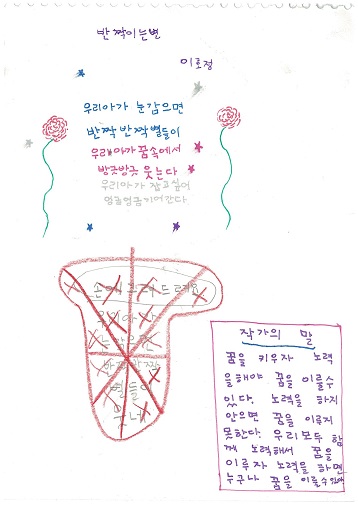 반짝이는별
이효정
우리아가 눈감으면
반짝 반짝 별들이
우리아가 꿈속에서
방긋방긋 웃는다
우리아가 잡고싶어
엉금엉금기어간다
작가의 말
꿈을 키우자 노력
을해야 꿈을 이룰수
있다. 노력을 하지
안으면 꿈을 이루지
못한다. 우리 모두 함
께 노력해서 꿈을
이루자 노력을 하면
누구나 꿈을 이룰수있어